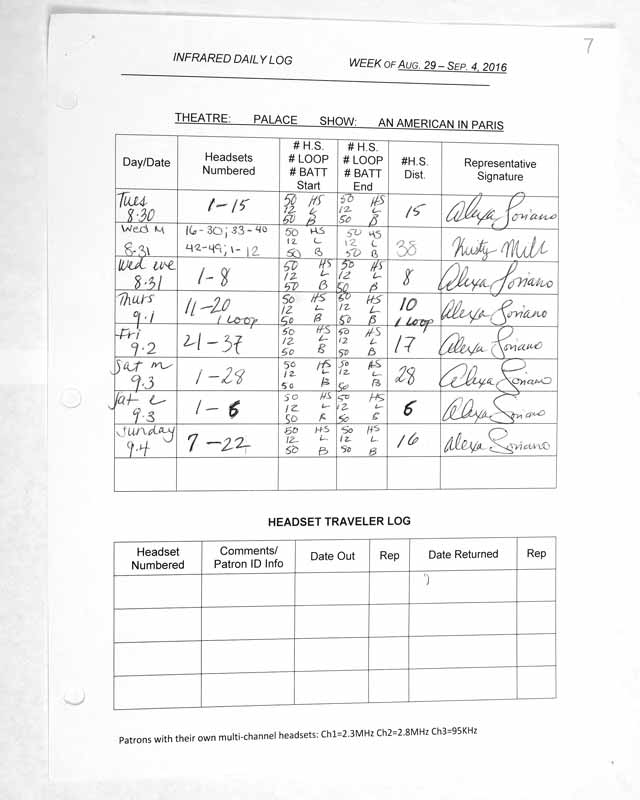 7
INFRARED DAILY LOG WEEK OF AUG. 29 – SEP. 4, 2016
THEATRE: PALACE SHOW: AN AMERICAN IN PARIS
Day/Date
Headsets Numbered
# H.S. # LOOP # BATT Start
# H.S. # LOOP # BATT End
#H.S. Dist.
Representative Signature
Tues 8.30
1-15
50 HS 12 L 50 B
50 HS 12 L 50 B
15
Alexa Soriano
Wed M 8.31
16-30; 33-40 42-49; 1-12
50 HS 12 L 50 B
50 HS 12 L 50 B
38
Wed eve 8.31
1-8
50 HS 12 L 50 B
50 HS 12 L 50 B
8
Alexa Soriano
Thurs 9.1
11-20 1 Loop
50 HS 12 L 50 B
50 HS 12 L 50 B
10 1 Loop
Alexa Soriano
Fri 9.2
21-37
50 HS 12 L 50 B
50 HS 12 L 50 B
17
Alexa Soriano
Sat m 9.3
1-28
50 HS 12 L 50 B
50 HS 12 L 50 B
28
Alexa Soriano
Sat e 9.3
1-6
50 HS 12 L 50 B
50 HS 12 L 50 B
6
Alexa Soriano
Sunday 9.4
7-22
50 HS 12 L 50 B
50 HS 12 L 50 B
16
Alexa Soriano
HEADSET TRAVELER LOG
Headset Numbered
Comments/ Patron ID Info
Date Out
Rep
Date Returned
Rep
Patrons with their own multi-channel headsets: Ch1=2.3MHz Ch2=2.8MHz Ch3=95KHz